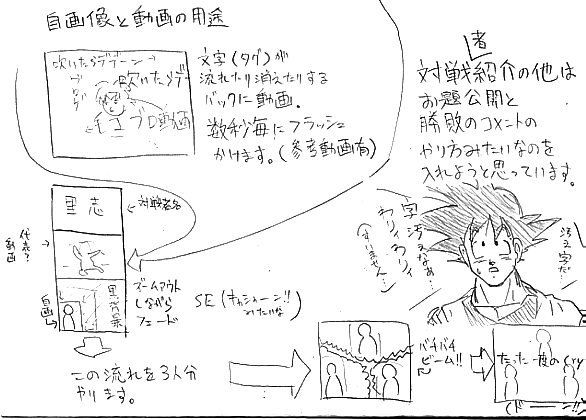 自画像と動画の用途
吹いたらデデーン→
吹いたらデデ
毛コプロ動画
文字(タグ)が
流れたり消えたりする
バックに動画.
数秒毎にフラッシュ
かけます。(参考動画有)
者
対戦紹介の他は
お題公開と
勝敗のコメントの
やり方みたいなのを
入れようと思っています。
里志
←対戦者名
代表?
動画
自画
黒背景
ズームアウト
しながら
フェード
SE(キュシューーン!!
みたいな
字汚えなぁ…
わりィわりィ
(すいません…)
汚え字だ…
この流れを3人分
やります。
バチバチ
ビーム!!
たった一度のcry